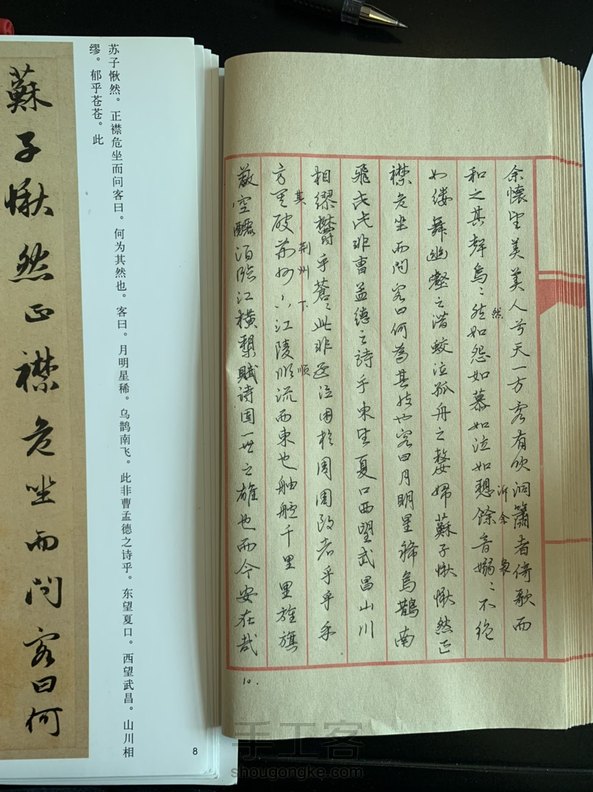 苏子愀然。正襟危坐而问客曰。何为其然也。客曰。月明星稀。乌鹊南飞。此非曹孟德之诗乎。东望夏口。西望武昌。山川相
缪。郁乎苍苍。此
蘇子愀然正襟危坐而问客曰何
8
余懷望美美人兮天一方客有吹洞簫者倚歌而
和之其聲烏〻然如怨如慕如泣如愬餘音嫋〻不絕
然
如縷舞幽壑之潛蛟泣孤舟之嫠婦蘇子愀愀然正
襟危坐而問客曰何為其然也客曰月明星稀烏鵲南
飛此非曹孟德之詩乎東望夏口西望武昌山川
相繆鬱乎蒼〻此非困於周周者乎乎乎
其 荆州 下 順
方其破荆州下江陵順流而東也舳艫千里里旌旗
蔽空釃酒臨江橫槊賦詩固一世之雄也而今安在哉
10.
手工客
shougongke.com